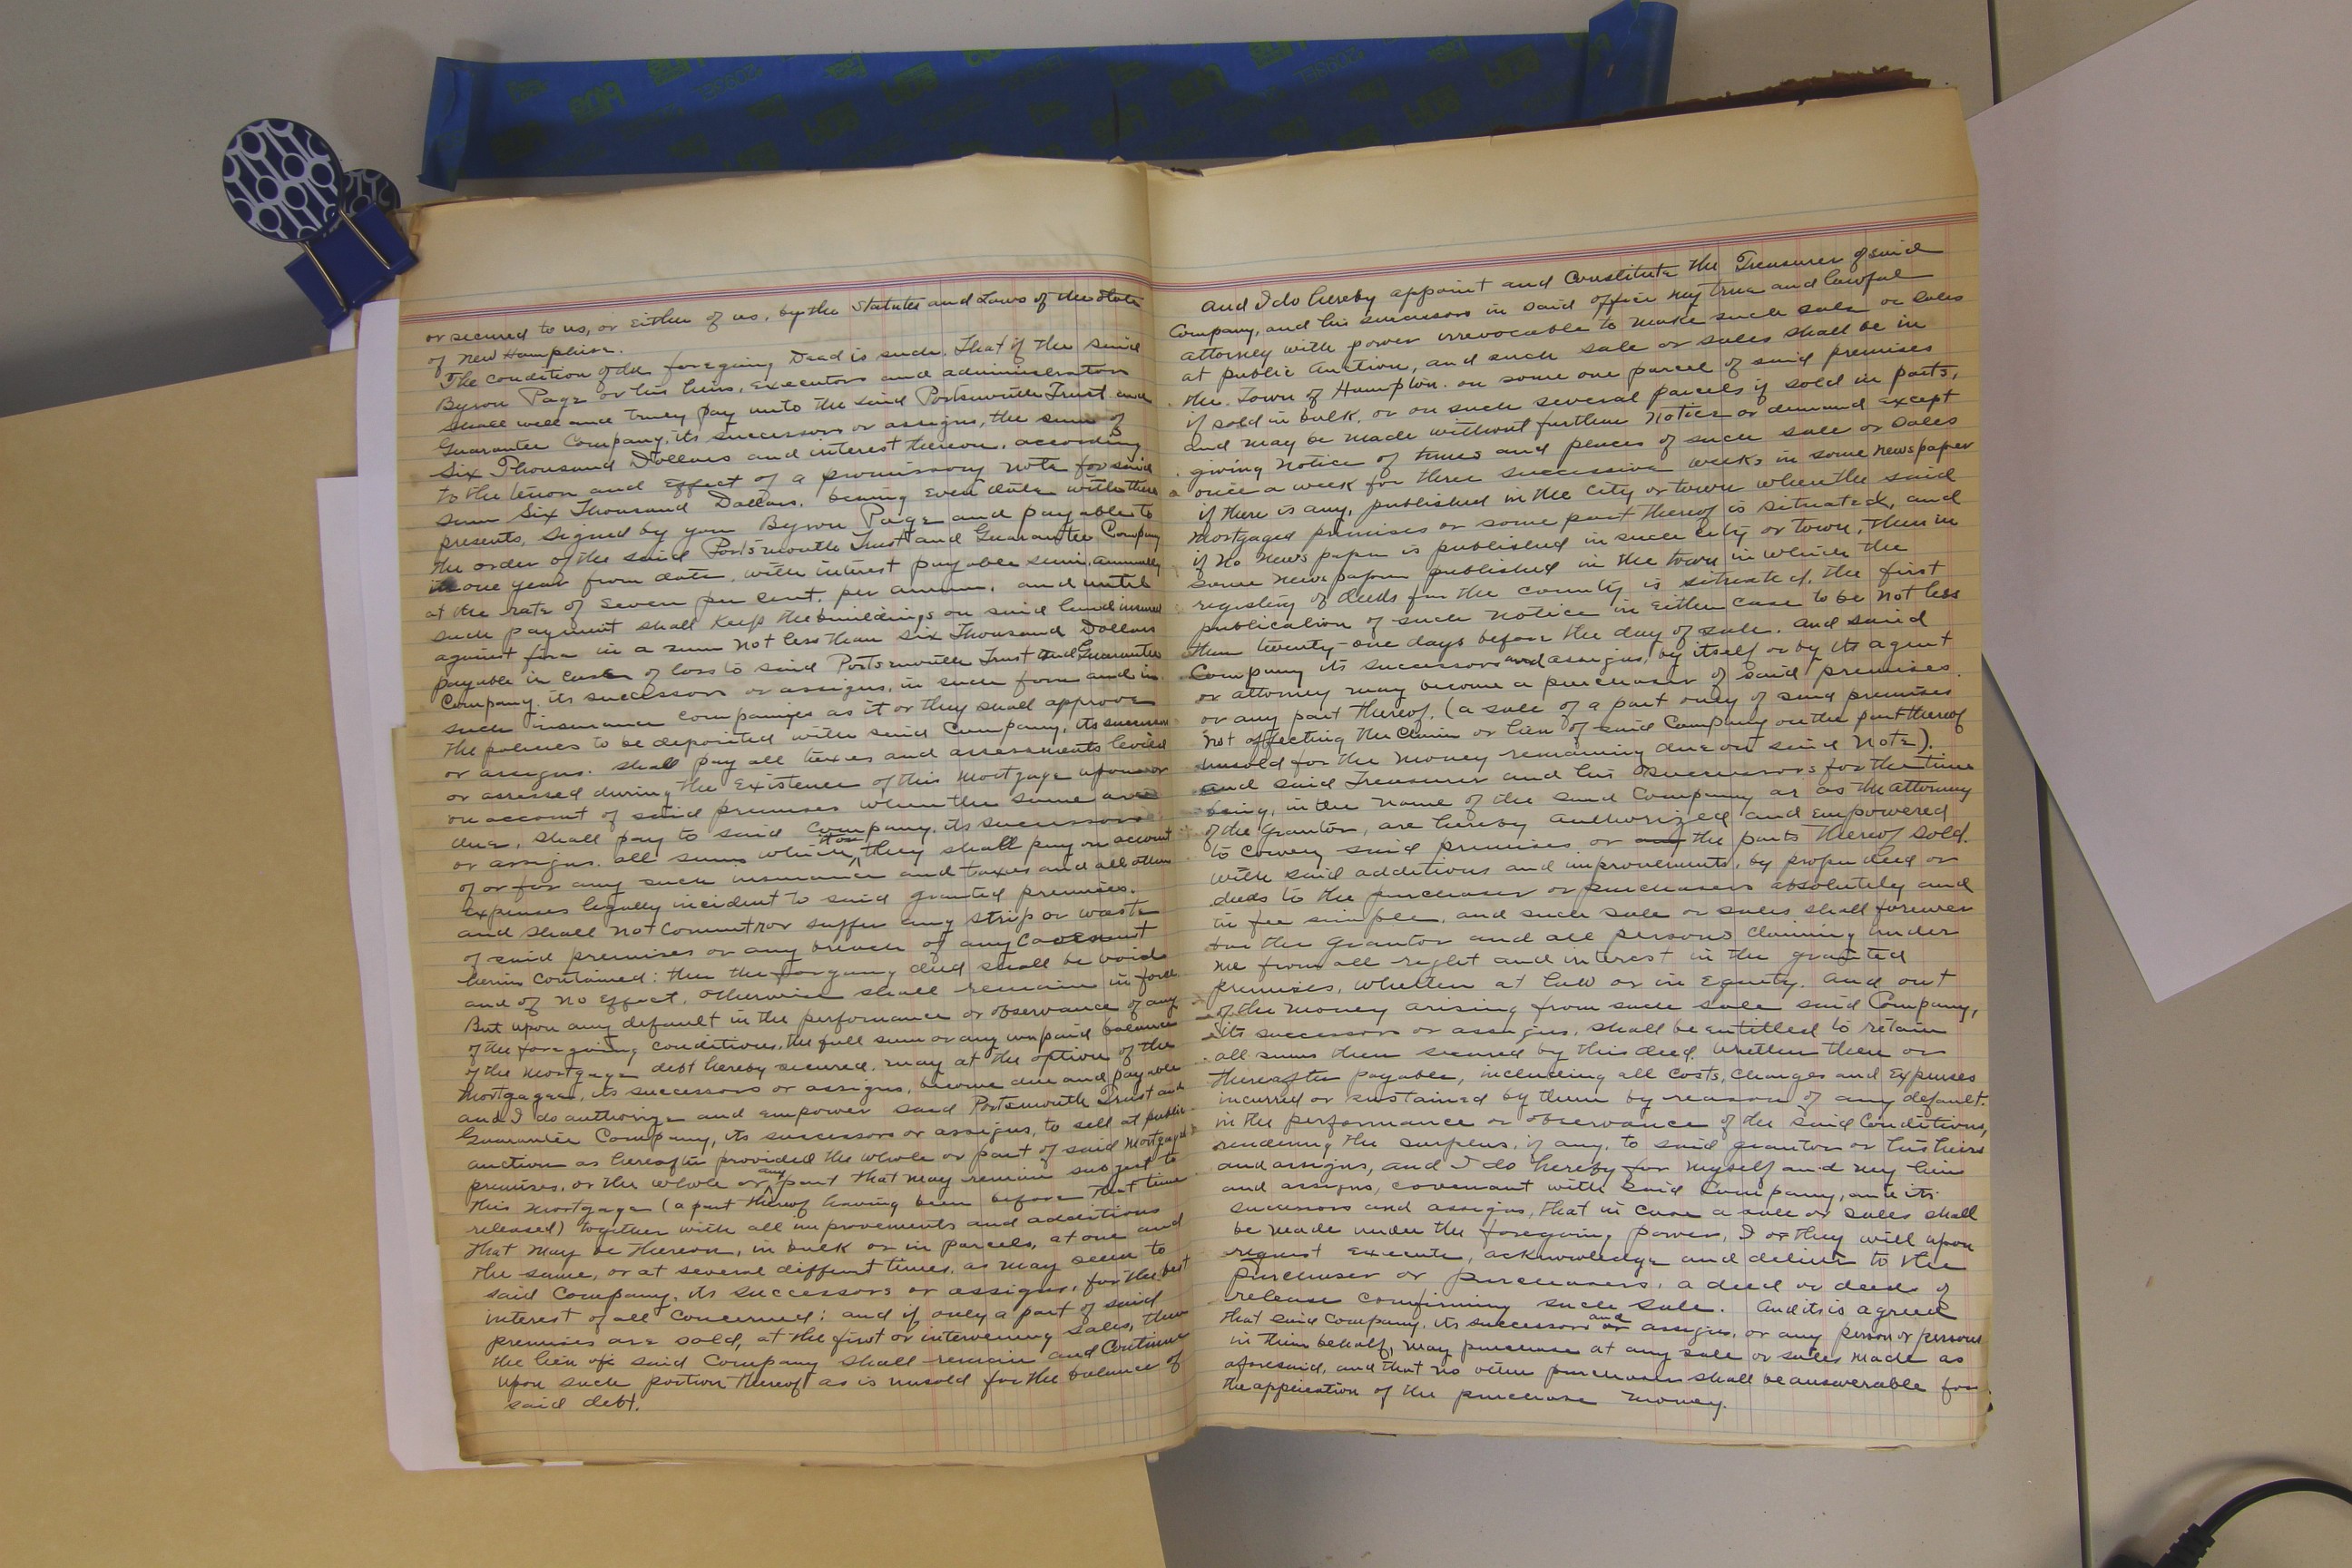 or secured to us, or either of us, by the Statutes and Laws of the State
of New Hampshire.
The condition of the foregoing Deed is such. That if the said
Byron Page or his heirs, executors and administrators
shall well and truly pay unto the said Portsmouth Trust and
Guarantee Company, its successors or assigns, the sum of
Six Thousand Dollars and interest thereon, according
to the tenor and effect of a promissory note for said
sum Six Thousand Dollars, bearing even date with these
presents, signed by you Byron Page and payable to
the order of the said Portsmouth Trust and Guarantee Company
in one year from date, with interest payable semi, annually
at the rate of seven per cent. per annum, and until
such payment shall keep the buildings on said land insured
against fire in a sum not less than six Thousand Dollars
payable in case of loss to said Portsmouth Trust and Guarantee
Company, its successors or assigns, in such form and in
such insurance companies as it or they shall approve
the policies to be deposited with said Company, its successors
or assigns. shall pay all taxes and assessments levied
or assessed during the existence of this mortgage upon or
on account of said premises when the same are
due, shall pay to said Company, its successors
or assigns. all sums which it or they shall pay on account
of or for any such insurance and taxes and all other
expenses legally incident to said granted premises.
and shall not commit nor suffer any strip or waste
of said premises or any breach of any Covenant
herein contained: then the forgoing deed shall be void
and of no effect, otherwise shall remain in force.
But upon any default in the performance or observance of any
of the foregoing conditions, the full sum or any unpaid balance
of the mortgage debt hereby secured, may at the option of the
mortgagee, its successors or assigns, become due and payable
and I do authorize and empower said Portsmouth Trust and
Guarantee Company, its successors or assigns, to sell at public
auction as hereafter provided the whole or part of said mortgaged
premises, or the whole or any part that may remain subject to
this mortgage (a part thereof having been before that time
released) together with all improvements and additions
that may be thereon, in bulk or in parcels, at one and
the same, or at several diffent times, as may seem to
said Company, its successors or assigns, for the best
interest of all concerned: and if only a part of said
premises are sold, at the first or intervening sales, then
the lien of said Company shall remain and Continue
upon such portion thereof as is unsold for the balance of
said debt.
And I do hereby appoint and Constitute the Treasurer of said
Company, and his successors in said office my true and lawful
attorney with power irrevocable to make such sale or sales
at public auction, and such sale or sales shall be in
the Town of Hampton. on some one parcel of said premises
if sold in bulk, or on such several parcels if sold in parts,
and may be made without further notice or demand except
giving notice of times and places of such sale or sales
once a week for three successive weeks in some newspaper
if there is any, published in the city or town where the said
mortgaged premises or some part thereof is situated, and
if no news paper is published in such city or town, then in
some news paper published in the town in which the
registry of deeds for the county is situated, the first
publication of such notice in either case to be not less
than twenty-one days before the day of sale. And said
Company its successors and assigns, by itself or by its agent
or attorney may become a purchaser of said premises
or any part thereof, (a sale of a part only of said premises
not affecting the claim or lien of said Company on the part thereof
unsold for the money remaining due on said note).
and said Treasurer and his successors for the time
being, in the name of the said Company or as the attorney
of the grantor, are hereby authorized and empowered
to convey said premises or any the parts thereof sold.
with said additions and improvements, by proper deed or
deeds to the purchaser or purchasers absolutely and
in fee simple, and such sale or sales shall forever
bar the grantor and all persons claiming under
me from all right and interest in the granted
premises, whether at law or in equity. And out
of the money arising from such sale said Company,
its successors or assigns, shall be entitled to retain
all sums then secured by this deed, whether then or
thereafter payable, including all costs, charges and expenses
incurred or sustained by them by reason of any default.
in the performance or observance of the said Conditions,
rendering the surplus, if any, to said grantor or his heirs
and assigns, and I do hereby for myself and my heirs
and assigns, covenant with said Company, and its
successors and assigns, that in case a sale or sales shall
be made under the foregoing power, I or they will upon
request execute, acknowledge and deliver to the
purchaser or purchasers, a deed or deeds of
release confirming such sale. And it is agreed
that said Company, its successors and or assigns, or any person or persons
in their behalf, may purchase at any sale or sales made as
aforesaid, and that no other purchaser shall be answerable for
the application of the purchase money.